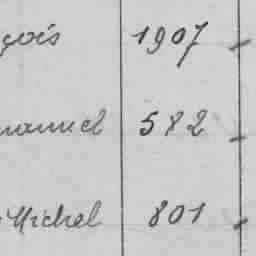 çois 1907 -
manuel 582 -
Michel 801 -